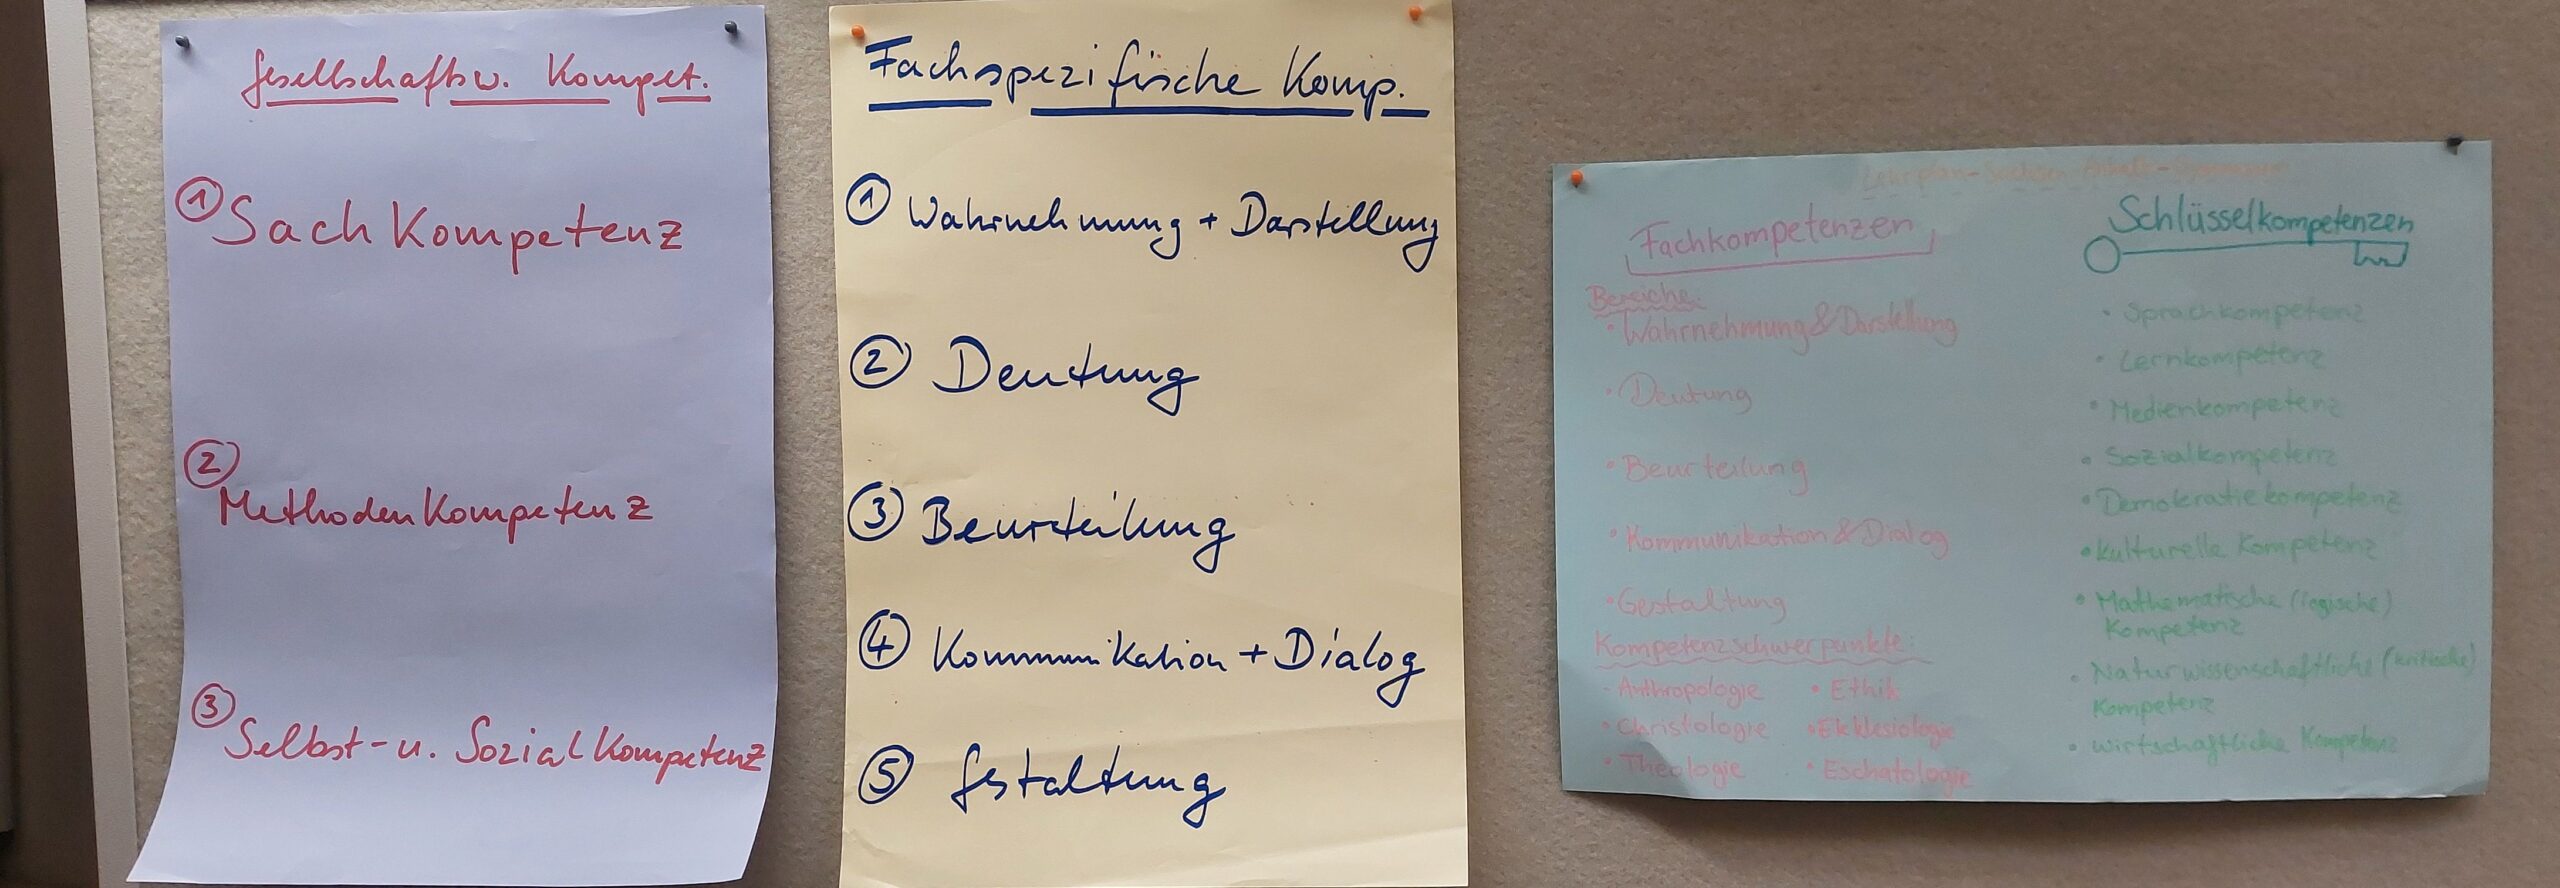 Gesellschaftsw. Kompet.
① Sachkompetenz
② Methodenkompetenz
③ Selbst- u. Sozialkompetenz
Fachspezifische Komp.
① Wahrnehmung + Darstellung
② Deutung
③ Beurteilung
④ Kommunikation + Dialog
⑤ Gestaltung
Lehrplan-Sachsen-Anhalt-Gymnasium
Fachkompetenzen
Bereiche:
• Wahrnehmung & Darstellung
• Deutung
• Beurteilung
• Kommunikation & Dialog
• Gestaltung
Kompetenzschwerpunkte:
- Anthropologie • Ethik
• Christologie • Ekklesiologie
• Theologie • Eschatologie
Schlüsselkompetenzen
• Sprachkompetenz
• Lernkompetenz
• Medienkompetenz
• Sozialkompetenz
• Demokratiekompetenz
• kulturelle Kompetenz
• Mathematische (logische)
Kompetenz
• Naturwissenschaftliche (kritische)
Kompetenz
• wirtschaftliche Kompetenz